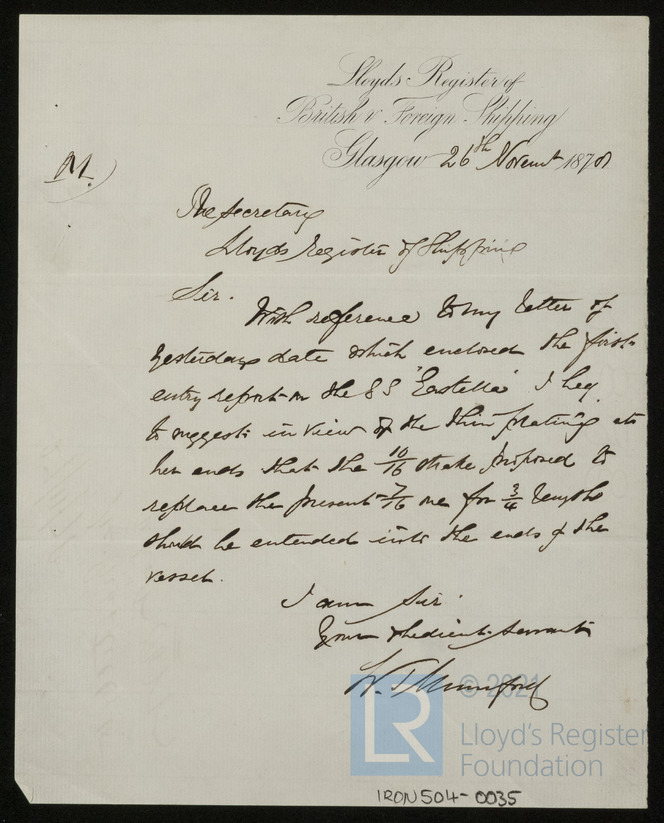 Lloyds Register of
British & Foreign Shipping
Glasgow 26th Novemr 1878
M.
The Secretary
Lloyds Register of Shipping
Sir.
With reference to my letter of
yesterdays date which enclosed the first
entry report on the SS "Eastella" I beg
to suggest in view of the thin plating at
her ends that the 10/16 strake proposed to
replace the present 7/16 one for 3/4 length
should be extended into the ends of the
vessel.
I am Sir
Your obedient servant
W. T. Mumford
© 2021
LR
Lloyd's Register
Foundation
IRON504-0035